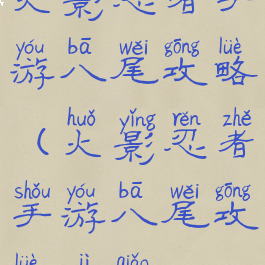 火影忍者手
yóu bā wěi gōng lüè
游八尾攻略
huǒ yǐng rěn zhě
(火影忍者
shǒu yóu bā wěi gōng
手游八尾攻
lüè jì qiǎo